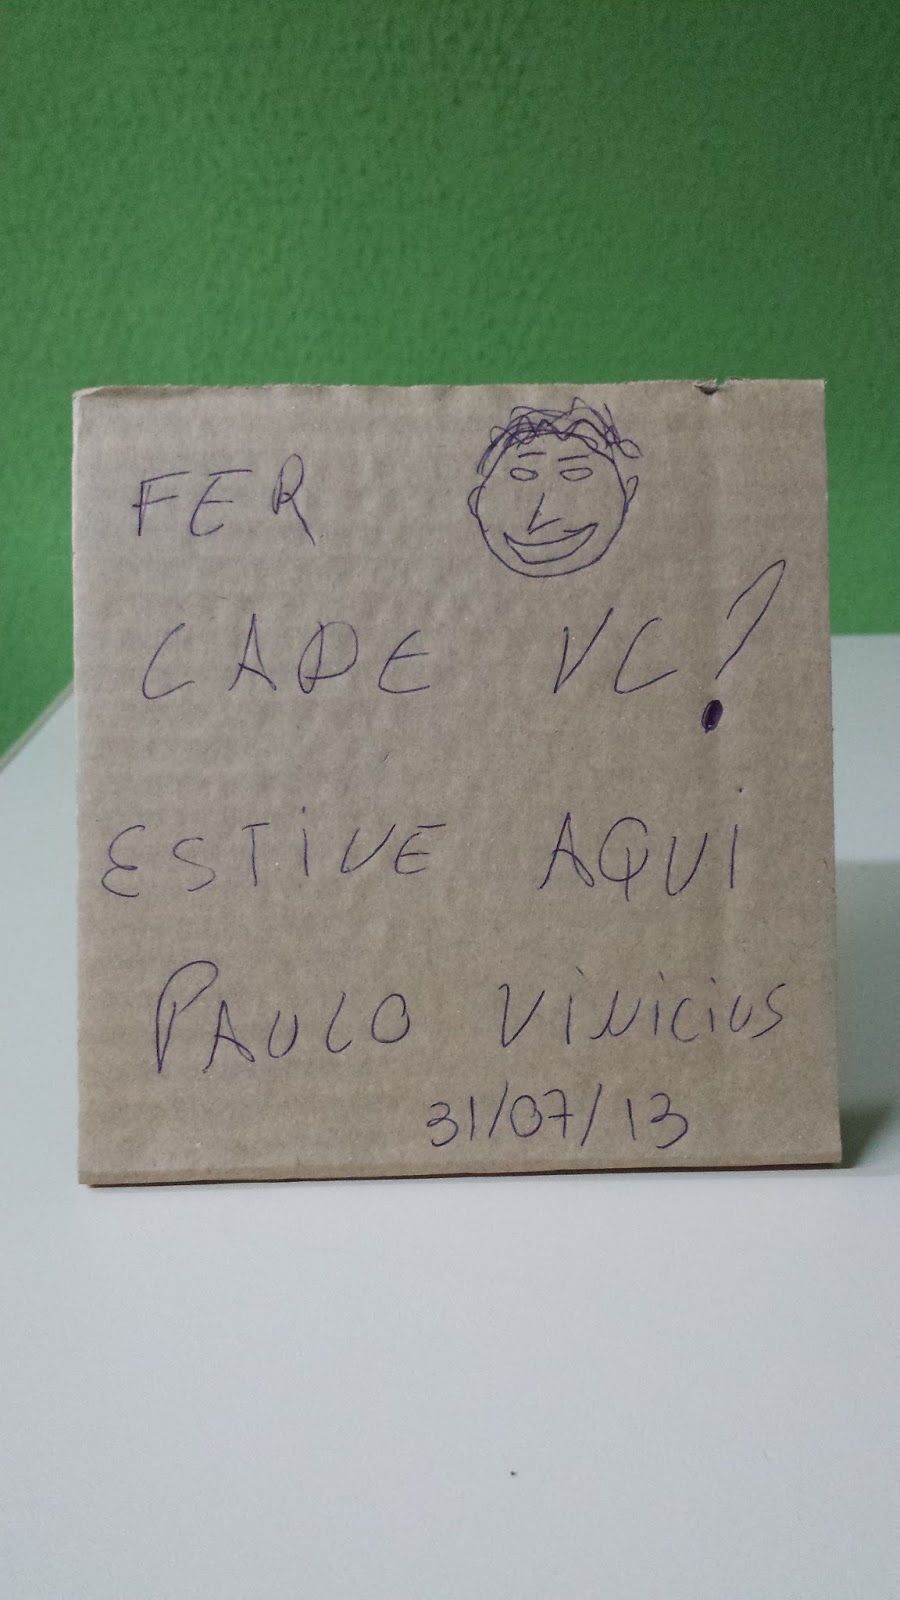 FER
CADE VC?
ESTIVE AQUI
PAULO VINICIUS
31/07/13